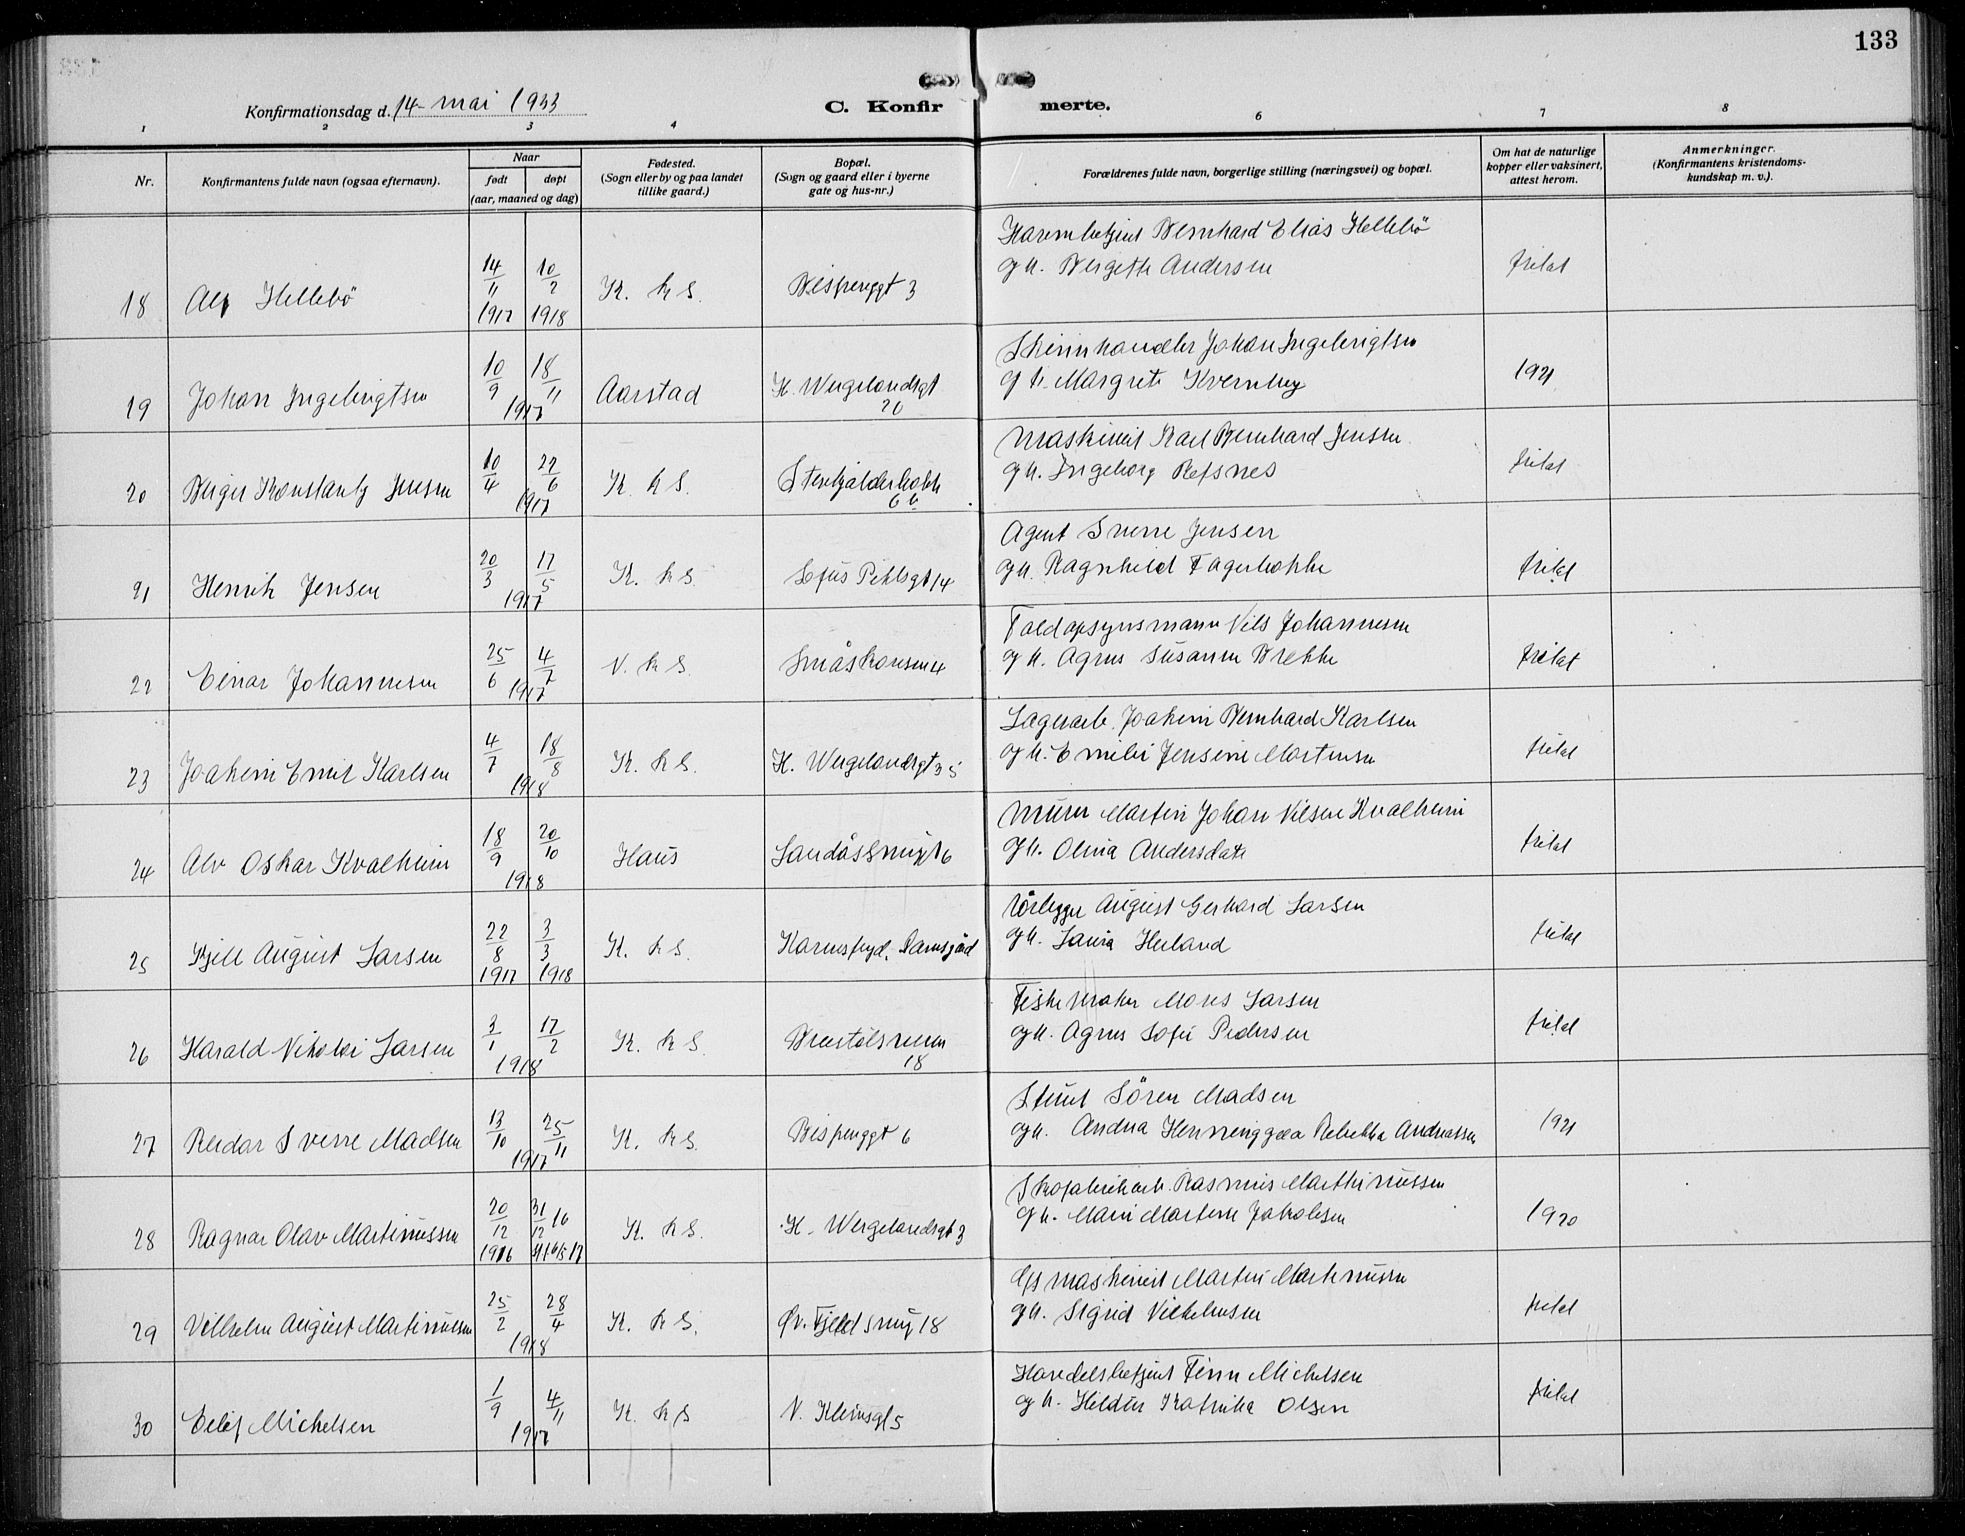 133
Konfirmationsdag d. 14 mai 1933
C. Konfirmerte.
1 2 3 4 6 7 8
Nr.
Konfirmantens fulde navn (ogsaa efternavn).
Naar
født døpt
(aar, maaned og dag)
Fødested.
(Sogn eller by og paa landet
tillike gaard.)
Bopæl.
(Sogn og gaard eller i byerne
gate og hus-nr.)
Forældrenes fulde navn, borgerlige stilling (næringsvei) og bopæl.
Om hat de naturlige
kopper eller vaksinert,
attest herom.
Anmerkninger.
(Konfirmantens kristendoms-
kundskap m. v.).
18 Alf Hellebö 14/11 1917 10/2 1918 K. k S. Bispenggt 3
Bernhard Elias Hellebö
og h. Bergitte Andersen
fritat
19 Johan Ingebrigtsen 10/9 18/11 1917 Aarstad H. Wergelandsgt 20
Skinnhandler Johan Ingebrigtsen
og h. Margrete
1921
20 Birger Konstantz Jensen 10/4 22/6 1917 K. k S.
Maskinist Karl Bernhard Jensen
og h. Ingeborg Refsnes
fritat
21 Henrik Jensen 20/3 17/5 1917 K. k S. Sofus Pihlsgt 14
Agent Sverre Jensen
og h. Ragnhild Fagerbakke
fritat
22 Einar Johannesen 25/6 4/7 1917 N. k S. Småskansen 4
Toldopsynsmann Nils Johannesen
og h. Agnes Susanne Brekke
fritat
23 Joakim Emil Karlsen 4/7 18/8 1918 K. k S. H. Wergelandsgt 35
Lagerarb. Joakim Bernhard Karlsen
og h. Emilie Jensine Martensen
fritat
24 Alv Oskar Kvalheim 18/9 20/10 1918 Haus Landåssmugt 6
Murer Martin Johan Nilsen Kvalheim
og h. Olina Andersdatt
fritat
25 Kjell August Larsen 22/8 1917 3/3 1918 K. k S. Damsgård
Rörlegger August Gerhard Larsen
og h. Laura
fritat
26 Harald Nikolai Larsen 3/1 17/2 1918 K. k S. 18
Mons Larsen
og h. Agnes Sofie Pedersen
fritat
27 Reidar Sverre Madsen 13/10 25/11 1917 K. k S. Bispenggt 6
Sören Madsen
og h. Andrea Henninggea Rebekka Andreassen
1921
28 Ragnar Olav Martinussen 20/12 1916 31/12 16 K. k S. H. Wergelandsgt 3
Skofabrikarb. Rasmus Marthinussen
og h. Marie Martine Jakobsen
1920
29 Vilhelm August Martinussen 25/2 28/4 1918 K. k S. Øv. Fjeldsmug 18
maskinist Martin Martinussen
og h. Sigrid Vilhelmsen
fritat
30 Eilif Michelsen 1/9 4/11 1917 K. k S N. Kleinsgt 5
Handelsbetjent Finn Michelsen
og h. Hildur Katrinka Olsen
fritat